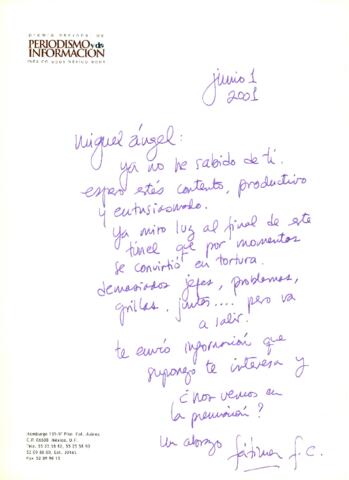 PREMIO NACIONAL DE
PERIODISMO y de
INFORMACIÓN
junio 1
2001
Miguel ángel:
ya no he sabido de ti.
espero estés contento, productivo
y entusiasmado.
ya miro luz al final de este
túnel que por momentos
se convirtió en tortura.
demasiados jefes, problemas,
grillas, juntos.... pero va
a salir.
te envío información que
supongo te interesa y
¿nos vemos en
la premiación?
un abrazo fátima f. c.
Hamburgo 135-9° Piso Col. Juárez
C.P. 06600 México, D.F.